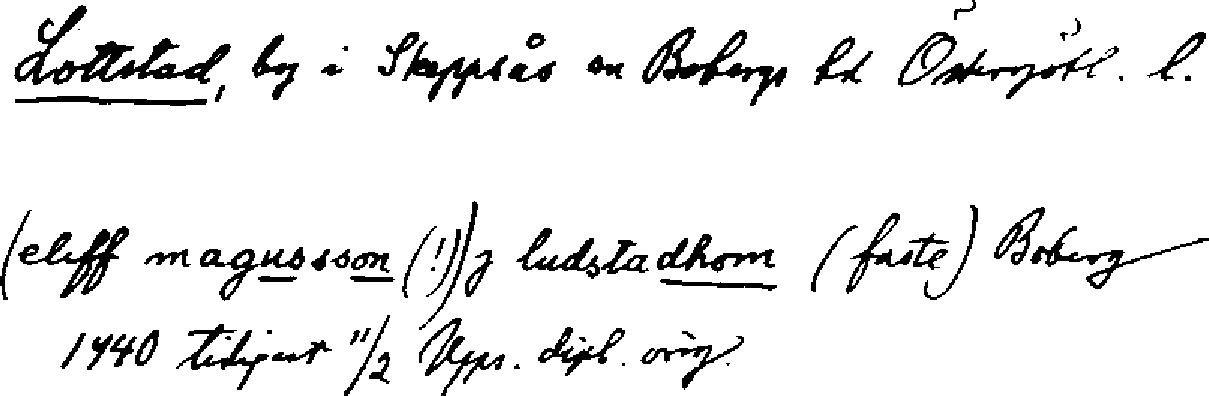 Lottstad, by i Skeppsås sn Bobergs hd Östergötl. l.
(eliff magusson (!)) j ludstadhom (faste) Boberg
1440 tidigast 11/2 Upps. dipl. orig.